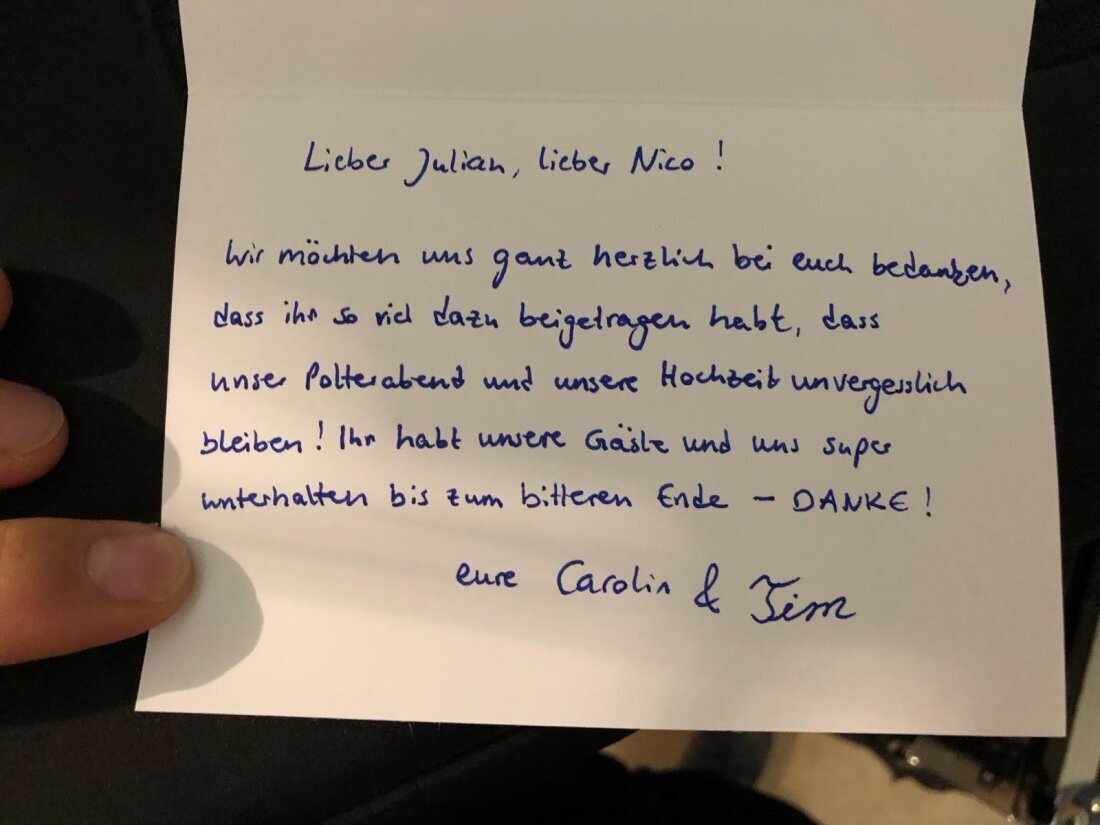 Lieber Julian, lieber Nico!
Wir möchten uns ganz herzlich bei euch bedanken,
dass ihr so viel dazu beigetragen habt, dass
unser Polterabend und unsere Hochzeit unvergesslich
bleiben! Ihr habt unsere Gäste und uns super
unterhalten bis zum bitteren Ende – DANKE!
eure Carolin & Tim